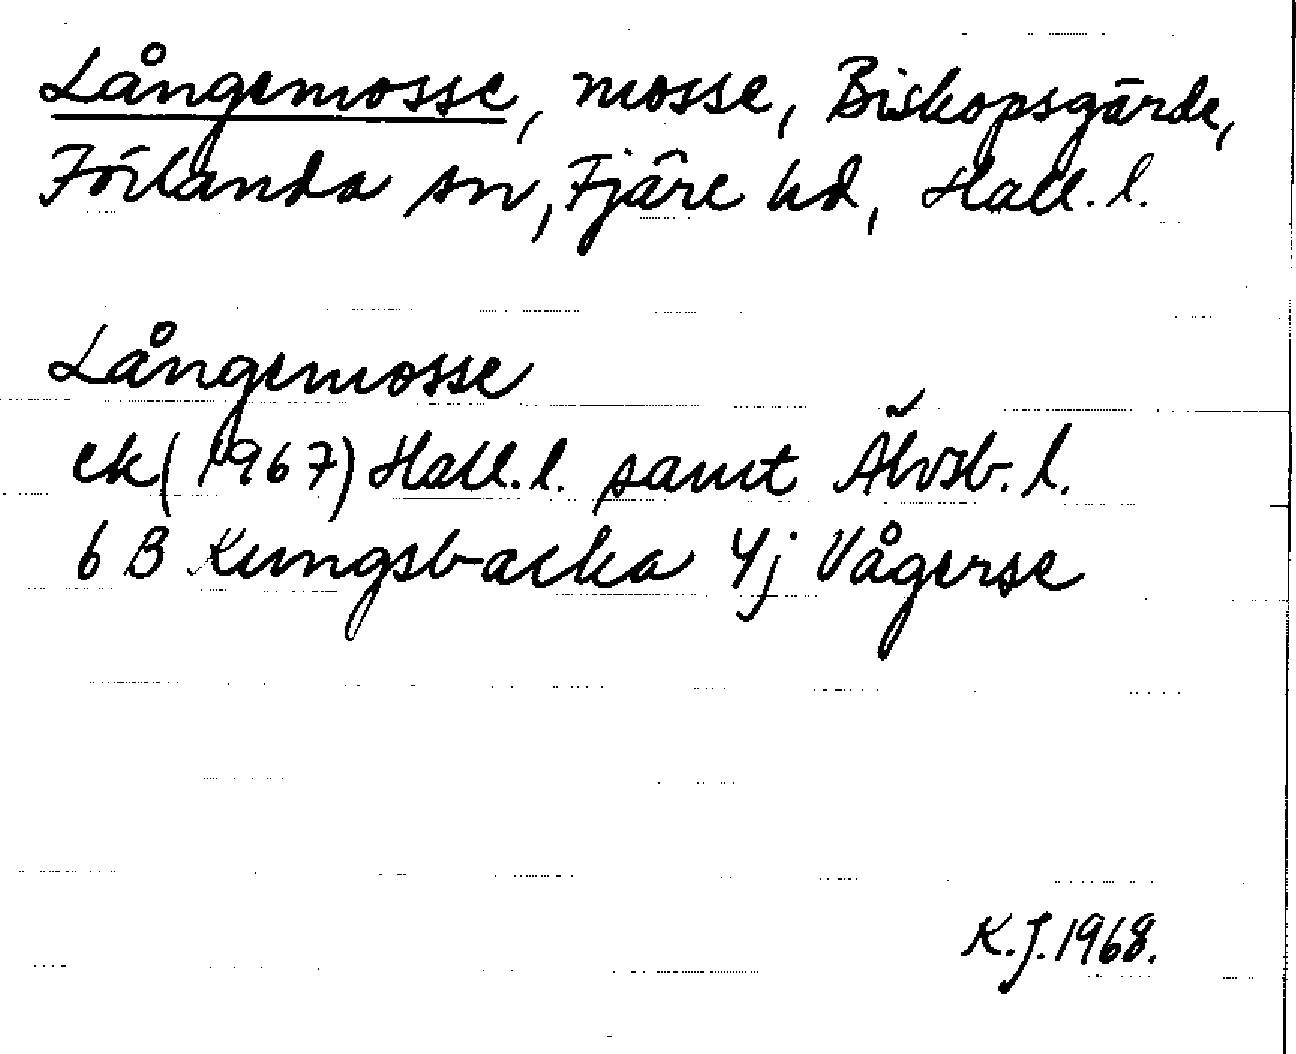 Långemosse, mosse, Biskopsgärde,
Förlanda sn, Fjäre hd, Hall. l.
Långemosse
ek (1967) Hall. l. samt Älvsb. l.
6 B Kungsbacka 4j Vågerse
K.J. 1968.